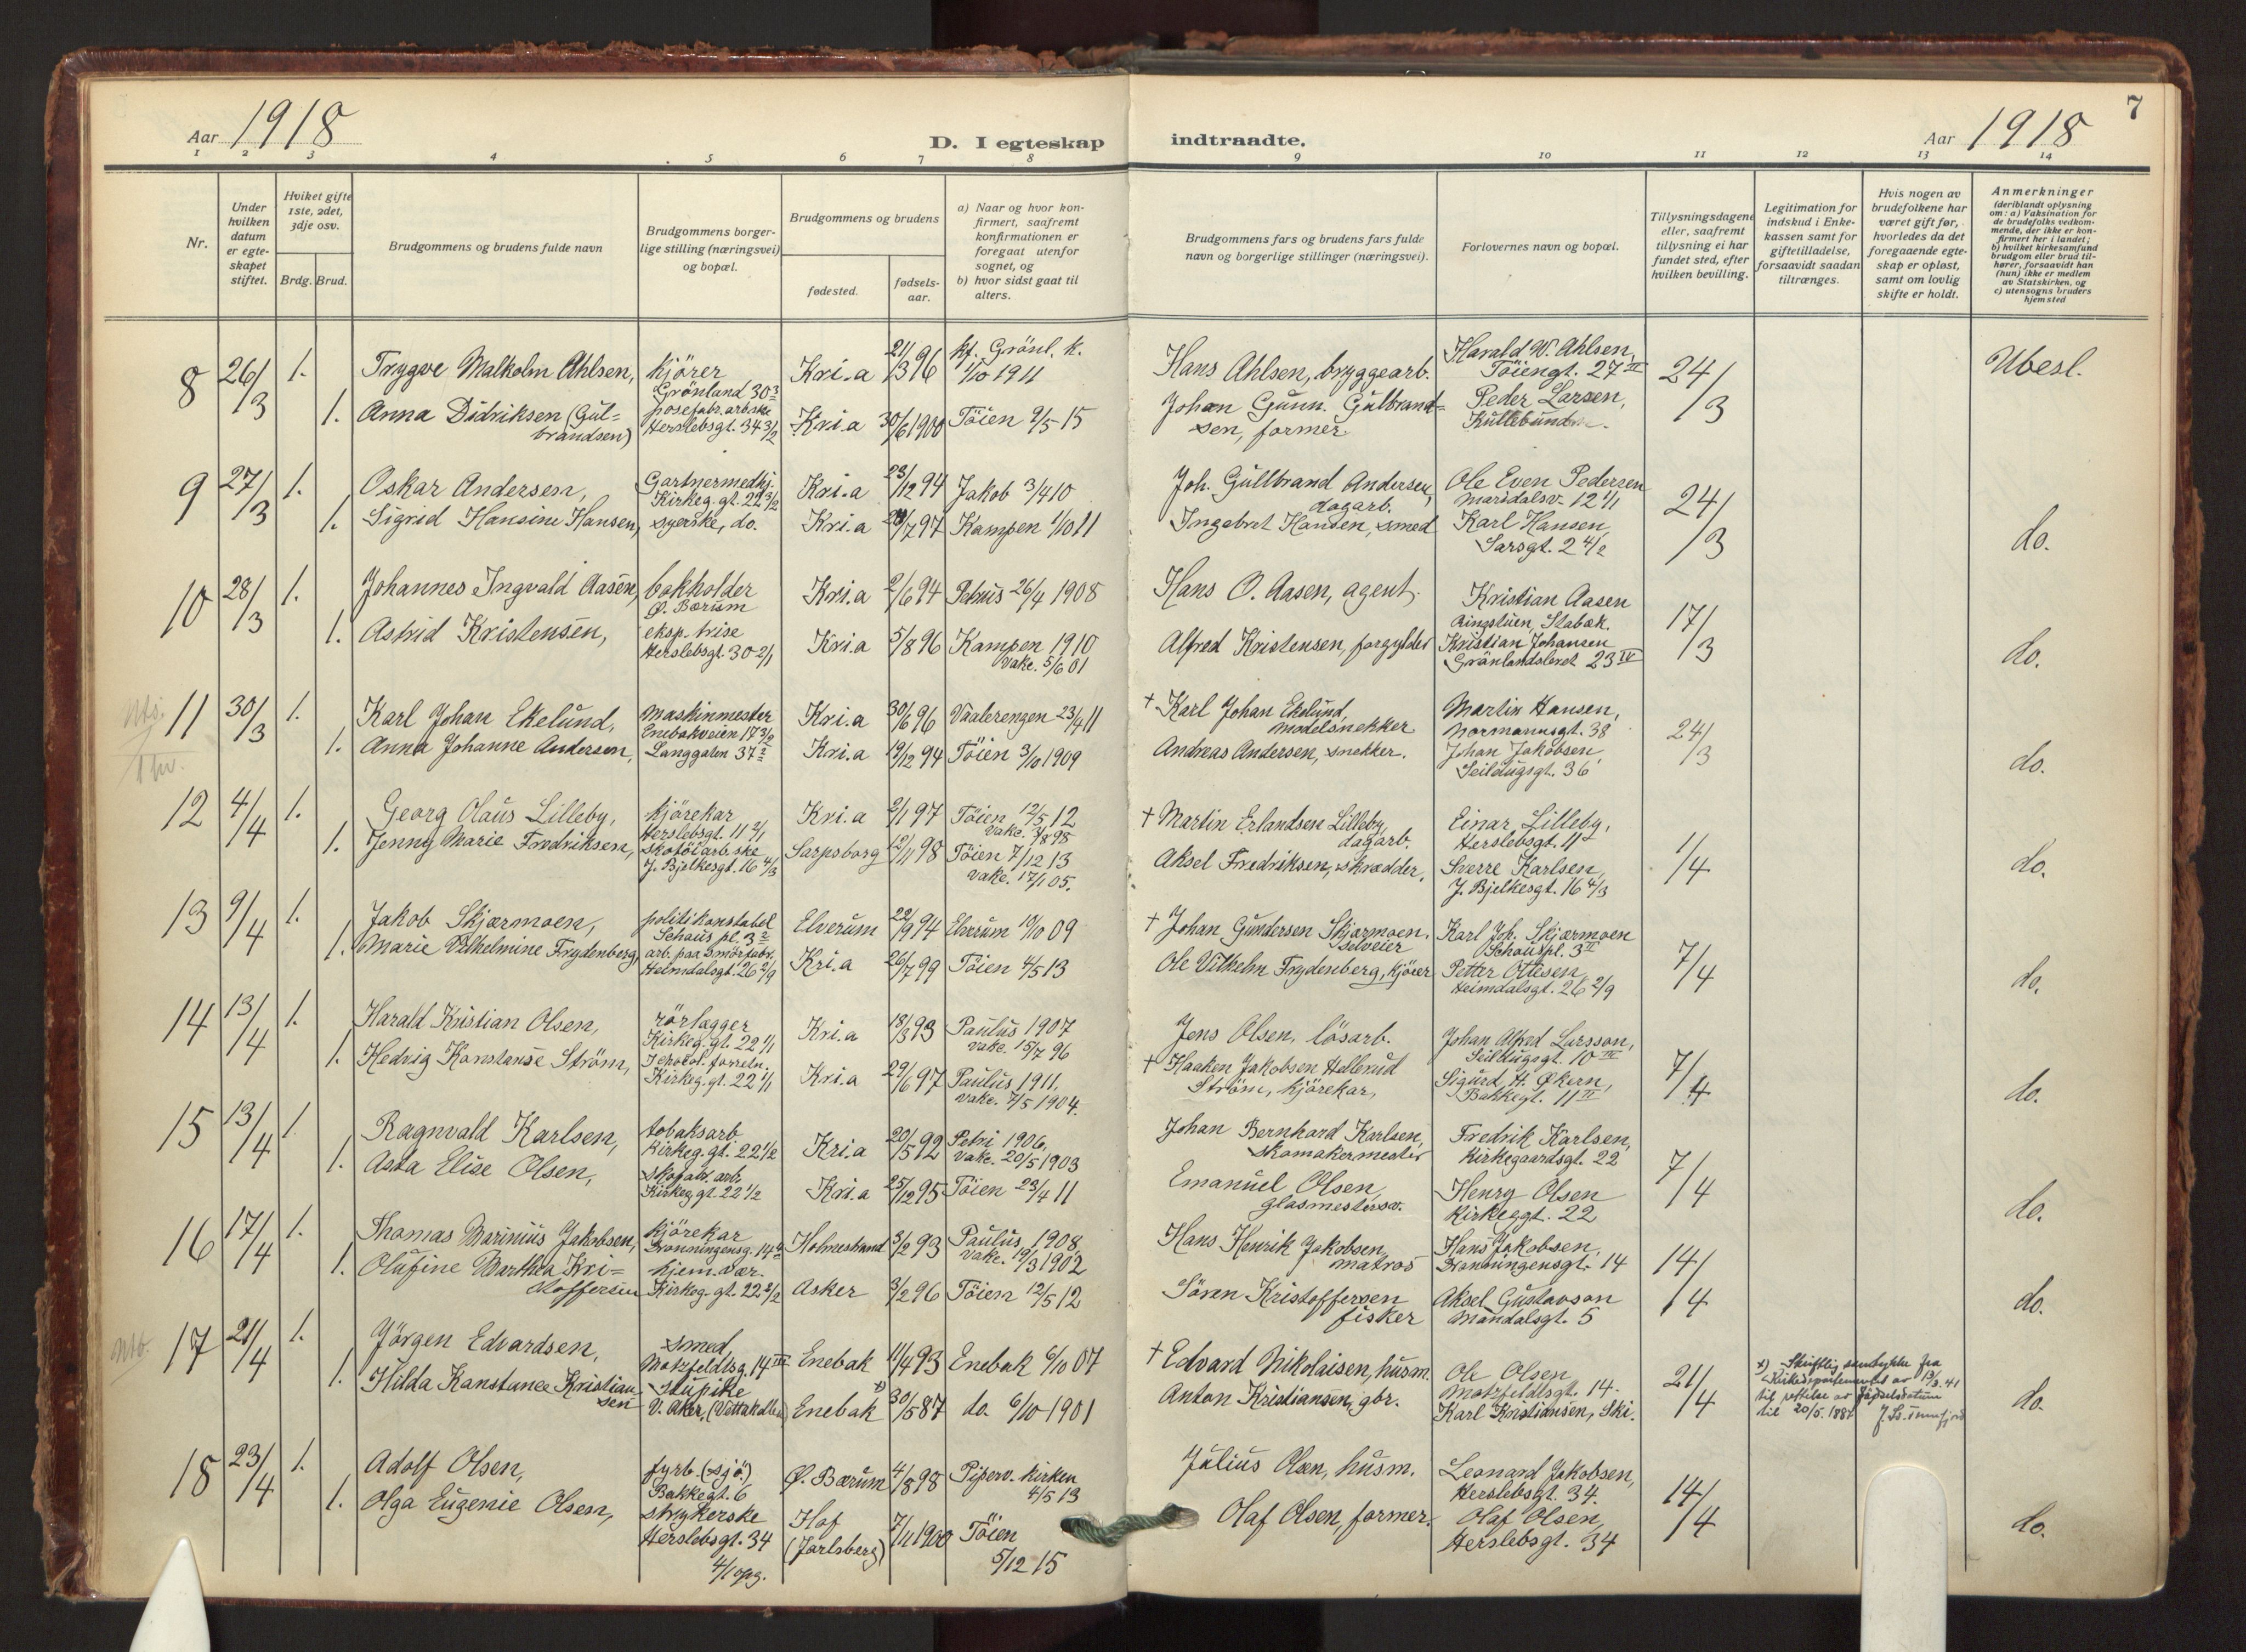 7
Aar 1918
D. I egteskap
indtraadte.
Aar 1918
1 2 3 4 5 6 7 8 9 10 11 12 13 14
Nr.
Under hvilken datum er egteskapet stiftet.
Hviket gifte 1ste, 2det, 3dje osv.
Brdg. Brud.
Brudgommens og brudens fulde navn
Brudgommens borgerlige stilling (næringsvei) og bopæl.
Brudgommens og brudens
fødested.
fødselsaar.
a) Naar og hvor konfirmert, saafremt konfirmationen er foregaat utenfor sognet, og
b) hvor sidst gaat til alters.
Brudgommens fars og brudens fars fulde navn og borgerlige stillinger (næringsvei).
Forlovernes navn og bopæl.
Tillysningsdagene eller, saafremt tillysning ei har fundet sted, efter hvilken bevilling.
Legitimation for indskud i Enkekassen samt for giftetilladelse, forsaavidt saadan tiltrænges.
Hvis nogen av brudefolkene har været gift før, hvorledes da det foregaaende egteskap er opløst, samt om lovlig skifte er holdt.
Anmerkninger (deriblandt oplysning om: a) Vaksination for de brudefolks vedkommende, der ikke er konfirmert her i landet; b) hvilket kirkesamfund brudgom eller brud tilhører, forsaavidt han (hun) ikke er medlem av Statskirken, og c) utensogns bruders hjemsted
8 26/3 1. Trygve Malkolm Ahlsen, kjörer Grönland 30 3 Kri.a 21/3 96 kf. Grönl. k. 1/10 1911 Hans Ahlsen, bryggearb. Harald W. Ahlsen, Töiengt. 27 III 24/3 Ubesl.
1. Anna Didriksen (Gulbrandsen) posefabr.arb.ske Herslebsgt. 34 3/2 Kri.a 30/6 1900 Töien 9/5 15 Johan Gunn. Gulbrandsen, former Peder Larsen,
9 27/3 1. Oskar Andersen, Gartnermedhj. Kirkeg.gt. 22 3/2 Kri.a 23/12 94 Jakob 3/4 10 Joh. Gullbrand Andersen, dagarb. Ole Even Pedersen Maridalsv. 12 1/1 24/3 do.
1. Sigrid Hansine Hansen, syerske, do. Kri.a /7 97 Kampen 1/10 11 Ingebret Hansen, smed Karl Hansen, Sarsgt. 2 4/2
10 28/3 1. Johannes Ingvald Aasen, bokholder Ø. Bærum Kri.a 2/6 94 Petrus 26/4 1908 Hans O. Aasen, agent Kristian Aasen Ringstuen, Stabæk. 17/3 do.
1. Astrid Kristensen, eksp.trise Herslebsgt. 30 2/1 Kri.a 5/8 96 Kampen 1910 vakc. 5/6 01 Alfred Kristensen, forgylder Kristian Johansen Grönlandsleret 23 IV
11 30/3 1. Karl Johan Ekelund, maskinmester Enebakveien 17 3/2 Kri.a 30/6 96 Vaalerengen 23/4 11 + Karl Johan Ekelund, modelsnekker Martin Hansen, Normannsgt. 38 24/3 do.
1. Anna Johanne Andersen, Langgaten 37 2 Kri.a 19/12 94 Töien 3/10 1909 Andreas Andersen, snekker. Johan Jakobsen Seildugsgt. 36
12 4/4 1. Georg Olaus Lilleby, kjörekar Herslebsgt. 11 2/1 Kri.a 2/1 97 Töien 12/5 12 vakc. 3/8 98 + Martin Erlandsen Lilleby, dagarb. Einar Lilleby, Herslebsgt. 11 1/4 do.
1. Jenny Marie Fredriksen, skotöiarb.ske J. Bjelkesgt. 16 4/3 Sarpsborg 12/11 98 Töien 7/12 13 vakc. 17/1 05. Aksel Fredriksen, skrædder, Sverre Karlsen, J. Bjelkesgt. 16 4/3
13 9/4 1. Jakob Skjærmoen, politikonstabel Schaus pl. 3 2 Elverum 22/9 94 Elverum 10/10 09 + Johan Gundersen Skjærmoen, selveier Karl Joh. Skjærmoen Schauspl. 3 II 7/4 do.
1. Marie Vilhelmine Frydenberg, arb. paa smörfabr. Heimdalsgt. 26 2/9 Kri.a 26/7 99 Töien 4/5 13 Ole Vilhelm Frydenberg, kjörer Petter Ottesen, Heimdalsgt. 26 2/9
14 13/4 1. Harald Kristian Olsen, rörlægger Kirkeg.gt. 22 1/1 Kri.a 18/3 93 Paulus 1907 vakc. 15/7 96 Jens Olsen, lösarb. Johan Alfred Larsson, Seildugsgt. 10 III 7/4 do.
1. Hedvig Konstanse Ström, I chocol. forretn. Kirkeg.gt. 22 1/1 Kri.a 29/6 97 Paulus 1911. vakc. 7/5 1904. + Haaken Jakobsen Hellerud Ström, kjörekar, Sigurd H. Økern, Bakkegt. 11 II
15 13/4 1. Ragnvald Karlsen, tobaksarb. Kirkeg.gt. 22 1/2 Kri.a 20/5 92 Petri 1906, vakc. 20/5 1903 Johan Bernhard Karlsen, skomakermester Fredrik Karlsen, Kirkegaardsgt. 22 7/4 do.
1. Asta Elise Olsen, skofabr.arb. Kirkeg.gt. 22 1/2 Kri.a 25/12 95 Töien 23/4 11 Emanuel Olsen, glasmestersv. Henry Olsen Kirkeggt. 22
16 17/4 1. Thomas Marinius Jakobsen, kjörekar Dronningensg. 14 Holmestrand 3/2 93 Paulus 1908, vakc. 19/3 1902 Hans Henrik Jakobsen, matros Hans Jakobsen, Dronningensgt. 14 14/4 do.
1. Olufine Marthea Kristoffersen hjem.vær. Kirkeg.gt. 22 2/2 Asker 3/2 96 Töien 12/5 12 Sören Kristoffersen fisker Aksel Gustavson Mandalsgt. 5
17 21/4 1. Jörgen Edvardsen, smed Motzfeldtsg. 14 III Enebak 11/4 93 Enebak 6/10 07 + Edvard Nikolaisen, husm. Ole Olsen Motzfeldtsgt. 14 21/4 do.
1. Hilda Konstance Kristiansen stupike V. Aker, (Vettakollen) Enebak x) 30/5 87 do. 6/10 1901 Anton Kristiansen, gbr. Karl Kristiansen, Ski.
x) Skriftlig samtykke fra Kirkedepartementet av 13/3.41 til rettelse av födselsdatum til 20/5.1887
18 23/4 1. Adolf Olsen, fyrb. (sjö.) Bakkegt. 6 Ø. Bærum 4/8 98 Piperv. kirken 4/5 13 Julius Olsen, husm. Leonard Jakobsen, Herslebsgt. 34. 14/4 do.
1. Olga Eugenie Olsen, strykerske Herslebsgt. 34 4/1 opg. Hof (Jarlsberg) 7/11 1900 Töien 5/12 15 Olaf Olsen, former. Olaf Olsen, Herslebsgt. 34